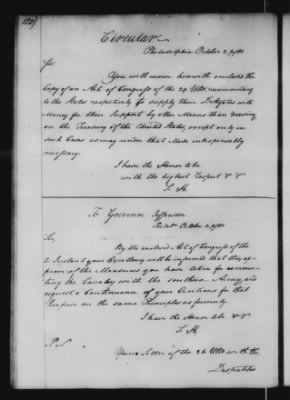 Circular
Philadelphia October 2. 1780
Sir
You will receive herewith enclosed the
Copy of an Act of Congress of the 24 Ulto, recommending
to the States respectively to supply their Delegates with
Money for their Support by other Means than drawing
on the Treasury of the United States, except only in
such Cases as may render that Mode indispensably
necessary.
I have the Honor to be
with the highest respect &c &c
S. H.
To Governor Jefferson
Philada October 2. 1780
Sir,
By the enclosed Act of Congress of the
2. Instant your Excellency will be informed that they ap=
prove of the Measures you have taken for
the Cavalry with the southern Army, and
request a Continuance of your Exertions for that
Purpose on the same Principles as formerly.
I have the Honor to be &c &c
S. H.
P. S. Your Letter of the 26 Ulto with the
Despatches